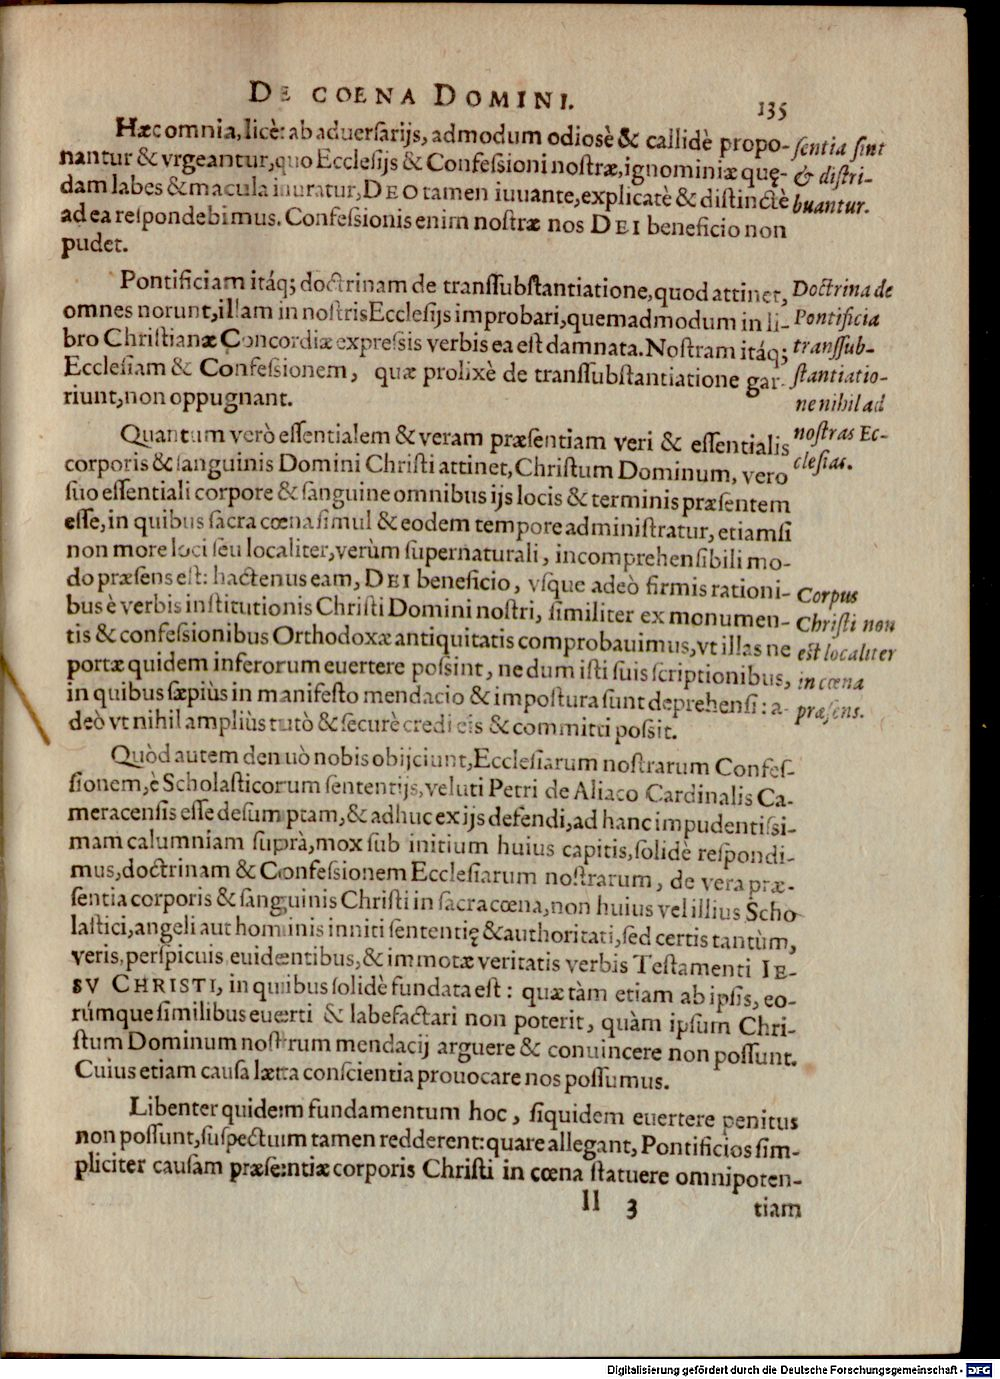 DE COENA DOMINI.
135
Hæc omnia, licèt ab aduersarijs, admodum odiosè & callidè propo-
nantur & vrgeantur, quo Ecclesijs & Confessioni nostræ, ignominiæ quę-
dam labes & macula inuratur, DEO tamen iuuante, explicatè & distinctè
ad ea respondebimus. Confessionis enim nostræ nos DEI beneficio non
pudet.
sentia sint
& distri-
buantur.
Pontificiam itáq; doctrinam de transsubstantiatione, quod attinet,
omnes norunt, illam in nostris Ecclesijs improbari, quemadmodum in li-
bro Christianæ Concordiæ expressis verbis ea est damnata. Nostram itáq;
Ecclesiam & Confessionem, quæ prolixè de transsubstantiatione gar-
riunt, non oppugnant.
Doctrina de
Pontificia
transsub-
stantiatio-
ne nihil ad
nostras Ec-
clesias.
Quantum verò essentialem & veram præsentiam veri & essentialis
corporis & sanguinis Domini Christi attinet, Christum Dominum, vero
suo essentiali corpore & sanguine omnibus ijs locis & terminis præsentem
esse, in quibus sacra cœna simul & eodem tempore administratur, etiamsi
non more loci seu localiter, verùm supernaturali, incomprehensibili mo-
do præsens est: hactenus eam, DEI beneficio, vsque adeò firmis rationi-
bus è verbis institutionis Christi Domini nostri, similiter ex monumen-
tis & confessionibus Orthodoxæ antiquitatis comprobauimus, vt illas ne
portæ quidem inferorum euertere possint, ne dum isti suis scriptionibus,
in quibus sæpiùs in manifesto mendacio & impostura sunt deprehensi: a-
deò vt nihil ampliùs tutò & securè credi eis & committi possit.
Corpus
Christi non
est localiter
in cœna
præsens.
Quòd autem denuò nobis obijciunt, Ecclesiarum nostrarum Confes-
sionem, è Scholasticorum sententijs, veluti Petri de Aliaco Cardinalis Ca-
meracensis esse desumptam, & adhuc ex ijs defendi, ad hanc impudentissi-
mam calumniam suprà, mox sub initium huius capitis, solidè respondi-
mus, doctrinam & Confessionem Ecclesiarum nostrarum, de vera præ-
sentia corporis & sanguinis Christi in sacra cœna, non huius vel illius Scho-
lastici, angeli aut hominis inniti sententię & authoritati, sed certis tantùm,
veris, perspicuis, euidentibus, & immotæ veritatis verbis Testamenti IE-
SV CHRISTI, in quibus solidè fundata est: quæ tàm etiam ab ipsis, eo-
rúmque similibus euerti & labefactari non poterit, quàm ipsum Chri-
stum Dominum nostrum mendacij arguere & conuincere non possunt.
Cuius etiam causa lætta conscientia prouocare nos possumus.
Libenter quidem fundamentum hoc, siquidem euertere penitus
non possunt, suspectuim tamen redderent: quare allegant, Pontificios sim-
pliciter causam præsentiæ corporis Christi in cœna statuere omnipoten-
ll 3
tiam
Digitalisierung gefördert durch die Deutsche Forschungsgemeinschaft - DFG